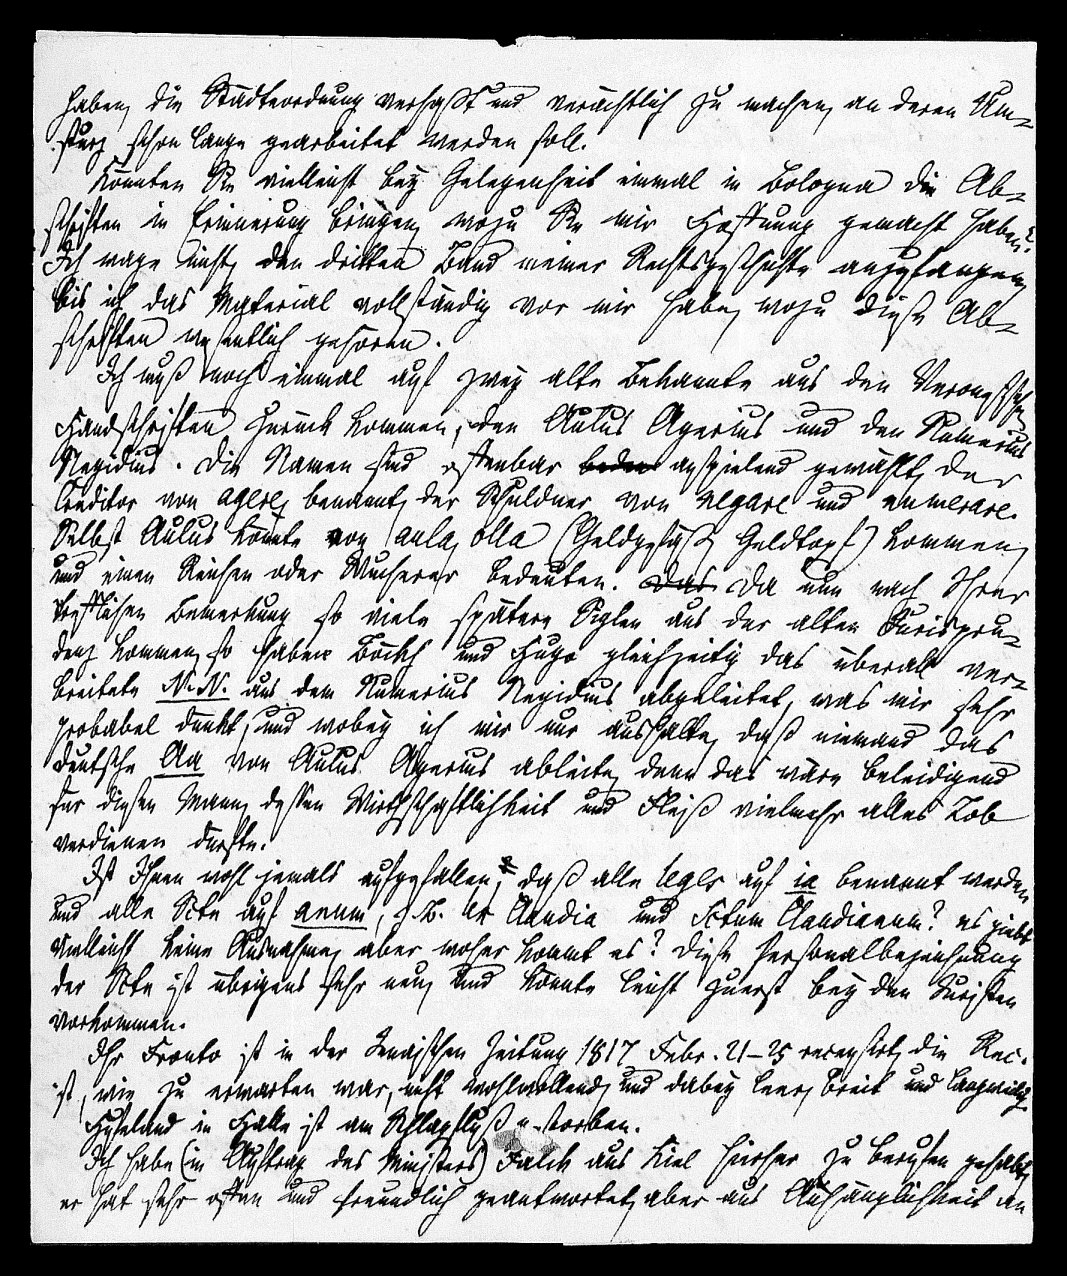 haben, die Städteordnung verhaßt und verächtlich zu machen, an deren Um-
sturz schon lange gearbeitet werden soll.
Könnten Sie vielleicht bey Gelegenheit einmal in Bologna die Ab-
schriften in Erinnerung bringen, wozu Sie mir Hoffnung gemacht haben?
Ich wage nicht, den dritten Band meiner Rechtsgeschichte anzufangen,
bis ich das Material vollständig vor mir habe, wozu diese Ab-
schriften wesentlich gehören.
Ich muß noch einmal auf zwey alte Bekannte aus den Veronesischen
Handschriften zurück kommen, den Aulus Agerius und den Numerius
Negidius. Die Namen sind offenbar anspielend gewählt, der
Creditor von agere benannt, der Schuldner von negare und numerare.
Selbst Aulus könnte von aula, olla (Geldgefäß, Geldtopf) kommen,
und einen Reichen oder Wucherer bedeuten. Das Da nun nach Ihrer
trefflichen Bemerkung so viele spätere Siglen aus der alten Jurispru-
denz kommen, so haben Böckh und Hugo gleichzeitig das überall ver-
breitete N.N. aus dem Numerius Negidius abgeleitet, was mir sehr
probabel dünkt, und wobey ich mir nur aushalte, daß niemand das
deutsche Aa von Aulus Agerius ableite, denn das wäre beleidigend
für diesen Mann, dessen Wirthschaftlichkeit und Fleiß vielmehr alles Lob
verdienen dürfte.
Ist Ihnen wohl jemals aufgefallen, daß alle leges auf ia benannt werden
und alle Scta auf anum, z.B. lex Claudia und Sctum Claudianum? es giebt
vielleicht keine Ausnahme, aber woher kommt es? Diese Personalbezeichnung
der Scta ist übrigens sehr neu, und könnte leicht zuerst bey den Juristen
vorkommen.
Ihr Fronto ist in der Jenaischen Zeitung 1817 Febr. 21-25 recensirt, die Rec.
ist, wie zu erwarten war, nicht wohlwollend, und dabey leer, breit und langweilig.
Hufeland in Halle ist am Schlagfluß gestorben.
Ich habe (im Auftrag des Ministers) Falck aus Kiel hierher zu berufen gehabt,
er hat sehr offen und freundlich geantwortet, aber aus Anhänglichkeit an